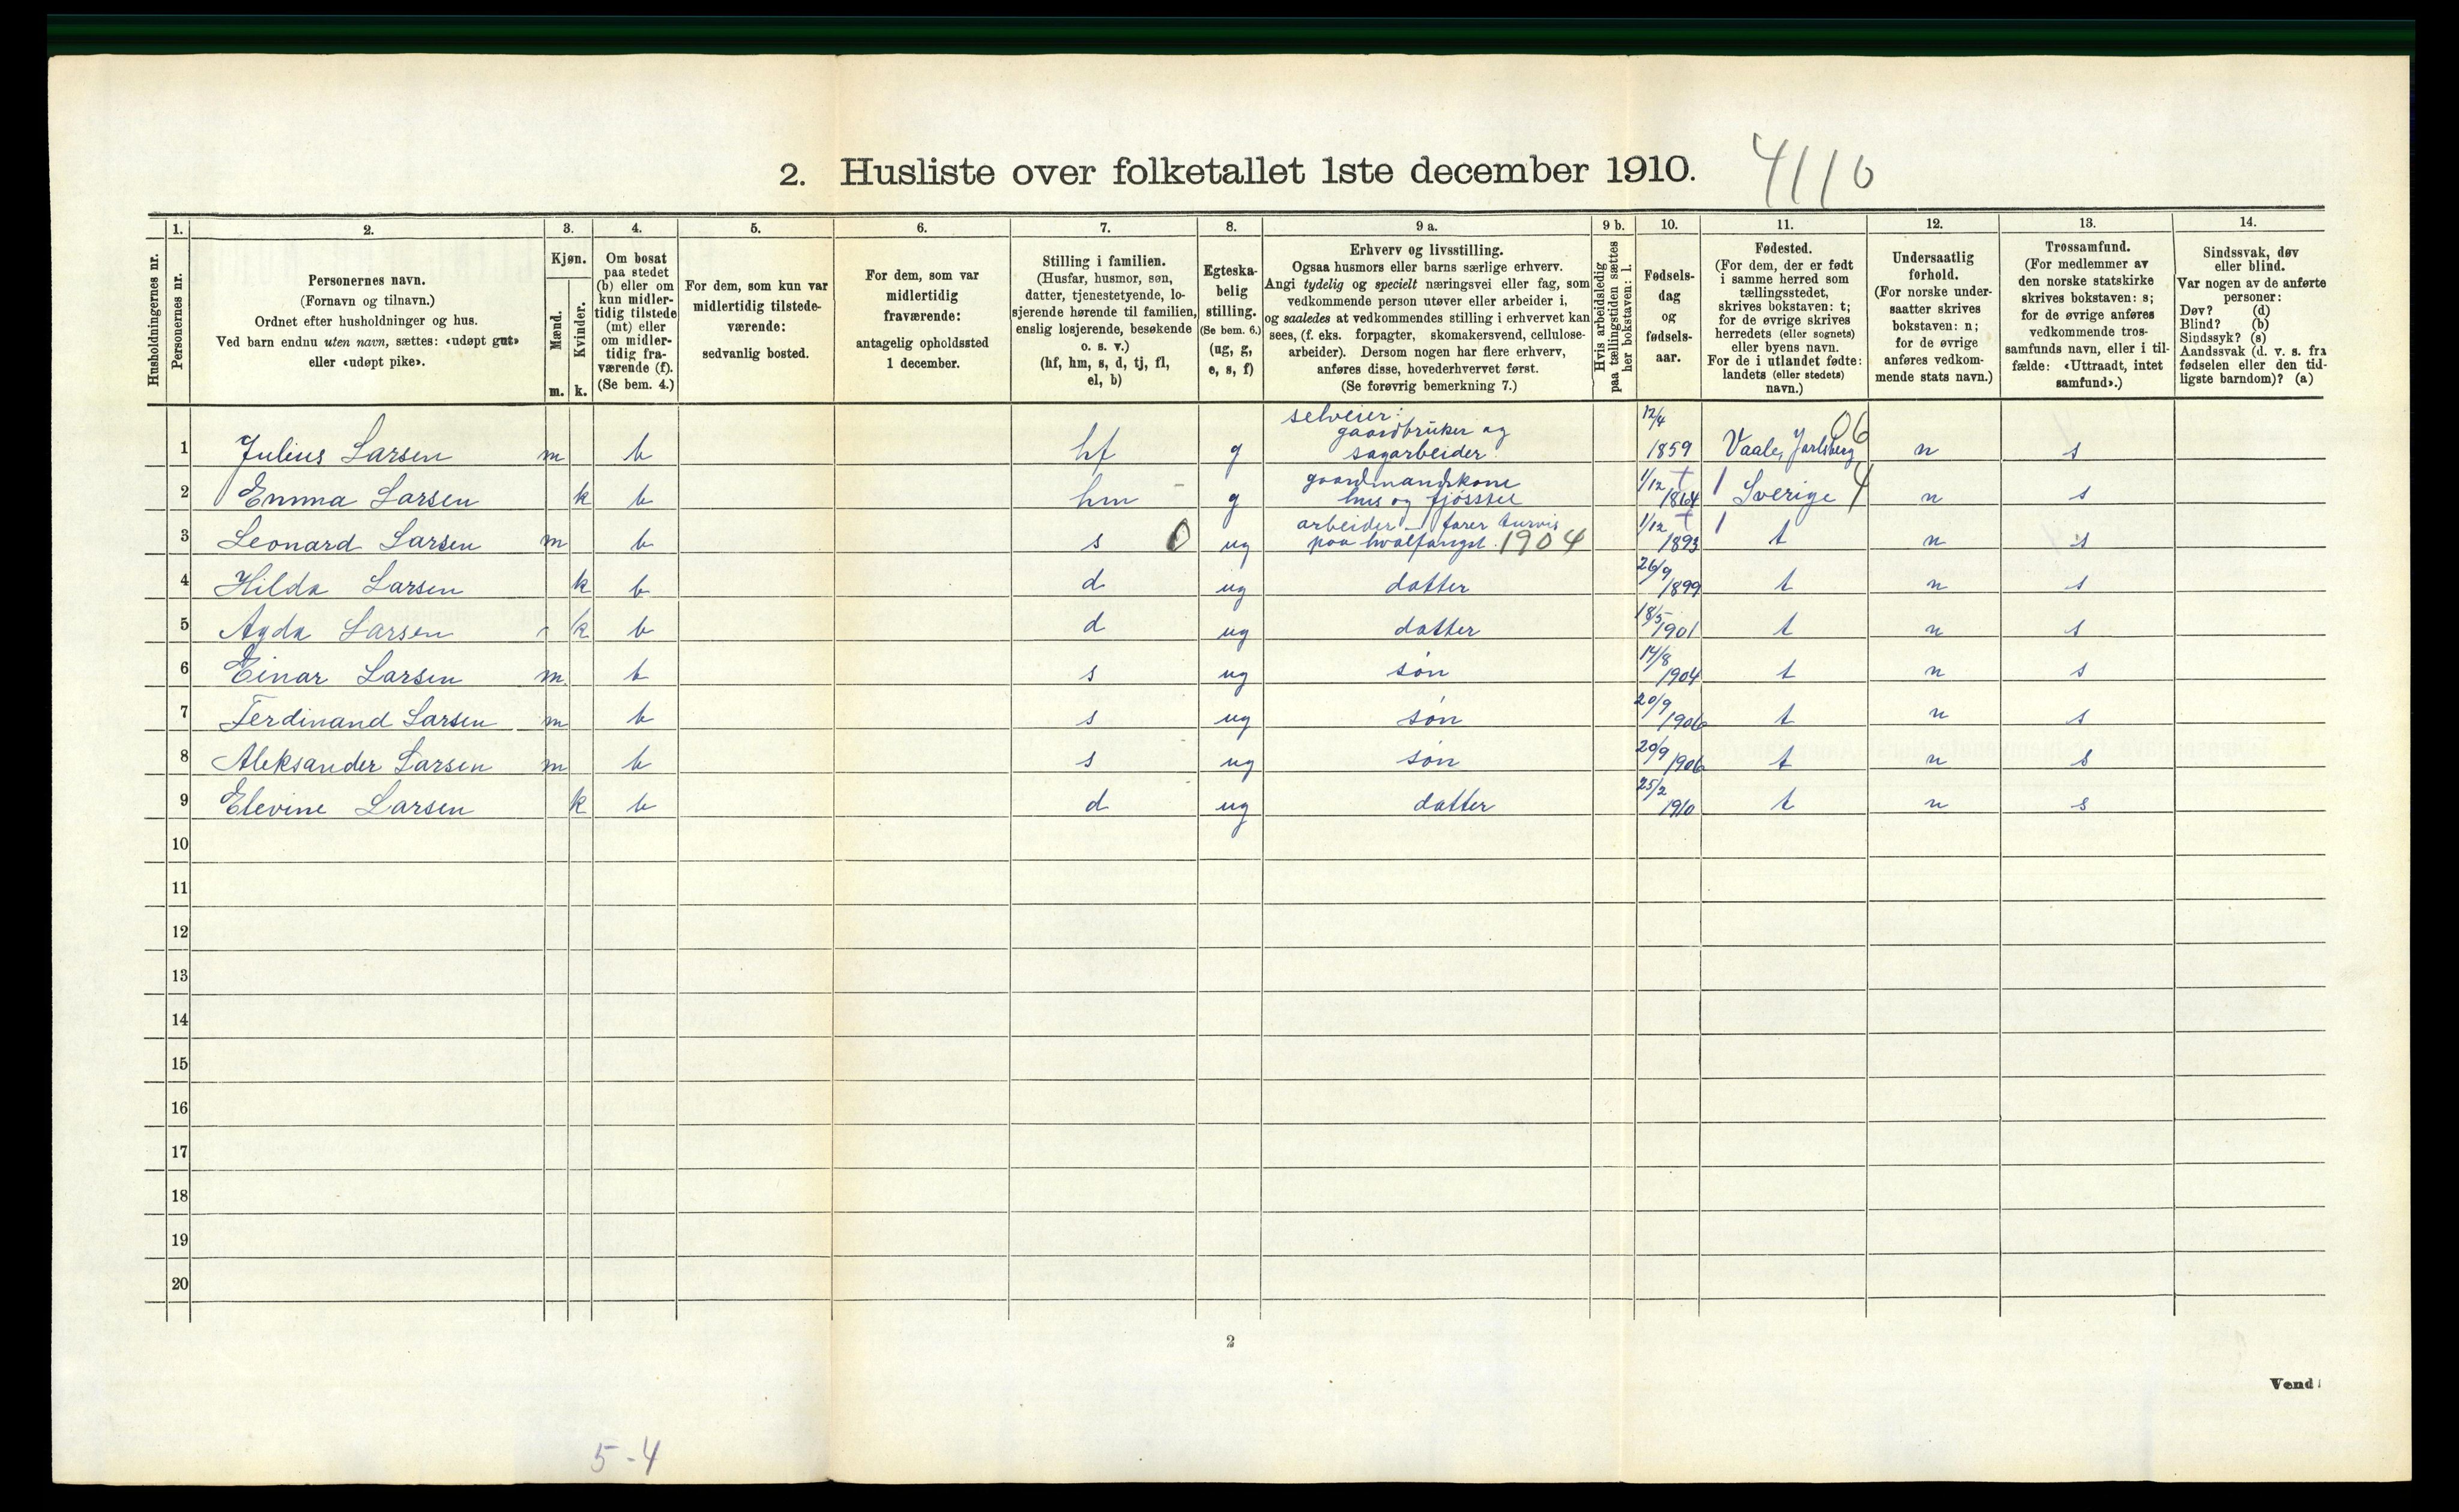 2. Husliste over folketallet 1ste december 1910. 4116
1. 2. 3. 4. 5. 6. 7. 8. 9 a. 9 b. 10. 11. 12. 13. 14.
Husholdningernes nr.
Personernes nr.
Personernes navn.
(Fornavn og tilnavn.)
Ordnet efter husholdninger og hus.
Ved barn endnu uten navn, sættes: «udøpt gut»
eller «udøpt pike».
Kjøn.
Mænd.
Kvinder.
m. k.
Om bosat
paa stedet
(b) eller om
kun midler-
tidig tilstede
(mt) eller
om midler-
tidig fra-
værende (f).
(Se bem. 4.)
For dem, som kun var
midlertidig tilstede-
værende:
sedvanlig bosted.
For dem, som var
midlertidig
fraværende:
antagelig opholdssted
1 december.
Stilling i familien.
(Husfar, husmor, søn,
datter, tjenestetyende, lo-
sjerende hørende til familien,
enslig losjerende, besøkende
o. s. v.)
(hf, hm, s, d, tj, fl,
el, b)
Egteska-
belig
stilling.
(Se bem. 6.)
(ug, g,
e, s, f)
Erhverv og livsstilling.
Ogsaa husmors eller barns særlige erhverv.
Angi tydelig og specielt næringsvei eller fag, som
vedkommende person utøver eller arbeider i,
og saaledes at vedkommendes stilling i erhvervet kan
sees, (f. eks. forpagter, skomakersvend, cellulose-
arbeider). Dersom nogen har flere erhverv,
anføres disse, hovederhvervet først.
(Se forøvrig bemerkning 7.)
Hvis arbeidsledig
paa tællingstiden sættes
her bokstaven: l.
Fødsels-
dag
og
fødsels-
aar.
Fødested.
(For dem, der er født
i samme herred som
tællingsstedet,
skrives bokstaven: t;
for de øvrige skrives
herredets (eller sognets)
eller byens navn.
For de i utlandet fødte:
landets (eller stedets)
navn.)
Undersaatlig
forhold.
(For norske under-
saatter skrives
bokstaven: n;
for de øvrige
anføres vedkom-
mende stats navn.)
Trossamfund.
(For medlemmer av
den norske statskirke
skrives bokstaven: s;
for de øvrige anføres
vedkommende tros-
samfunds navn, eller i til-
fælde: «Uttraadt, intet
samfund».)
Sindssvak, døv
eller blind.
Var nogen av de anførte
personer:
Døv? (d)
Blind? (b)
Sindssyk? (s)
Aandssvak (d. v. s. fra
fødselen eller den tid-
ligste barndom)? (a)
selveier: 12/4 06
gaardbruker og
1 Julius Larsen m b hf g sagarbeider 1859 Vaale, Jarlsberg n s
gaardmandskone 1/12 +
2 Emma Larsen k b hm - g hus og fjøsstel 1864 1 Sverige 4 n s
arbeider - farer turvis 1/12 +
3 Leonard Larsen m b s 0 ug paa hvalfangst. 1904 1893 1 t n s
4 Hilda Larsen k b d ug datter 26/9 1899 t n s
5 Agda Larsen k b d ug datter 18/5 1901 t n s
6 Einar Larsen m b s ug søn 14/8 1904 t n s
7 Ferdinand Larsen m b s ug søn 20/9 1906 t n s
8 Aleksander Larsen m b s ug søn 20/9 1906 t n s
9 Elevine Larsen k b d ug datter 25/2 1910 t n s
10
11
12
13
14
15
16
17
18
19
20
2
Vend!
5-4